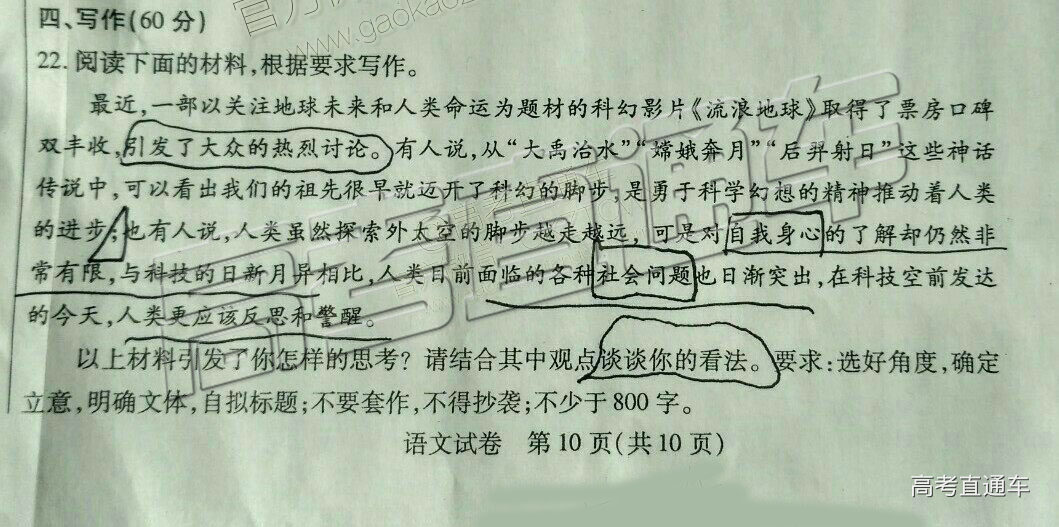 四、写作(60分)
22. 阅读下面的材料,根据要求写作。
最近,一部以关注地球未来和人类命运为题材的科幻影片《流浪地球》取得了票房口碑
双丰收,引发了大众的热烈讨论。有人说,从“大禹治水”“嫦娥奔月”“后羿射日”这些神话
传说中,可以看出我们的祖先很早就迈开了科幻的脚步,是勇于科学幻想的精神推动着人类
的进步;也有人说,人类虽然探索外太空的脚步越走越远,可是对自我身心的了解却仍然非
常有限,与科技的日新月异相比,人类日前面临的各种社会问题也日渐突出,在科技空前发达
的今天,人类更应该反思和警醒。
以上材料引发了你怎样的思考?请结合其中观点谈谈你的看法。要求:选好角度,确定
立意,明确文体,自拟标题;不要套作,不得抄袭;不少于800字。
语文试卷 第10页(共10页)
www.gaokaoz
高考直通车
高考直通车